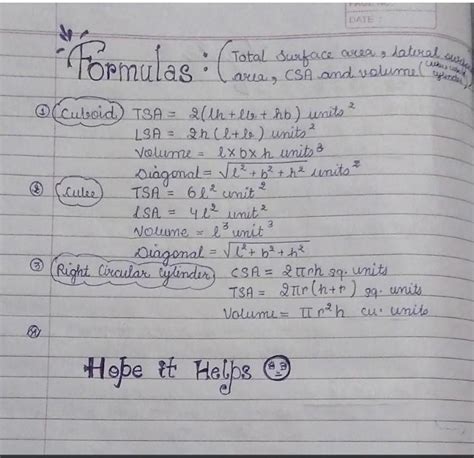 DATE :
Formulas : (Total Surface area, lateral surface
area, CSA and volume
cylinder)
① Cuboid TSA = 2(lh + lb + hb) units²
LSA = 2h (l+b) units²
Volume = l×b×h units³
Diagonal = √l² + b² + h² units²
② Cube TSA = 6l² unit²
LSA = 4l² unit²
Volume = l³ unit³
Diagonal = √l² + b² + h²
③ Right Circular Cylinder CSA = 2πrh sq. units
TSA = 2πr(h+r) sq. units
Volume = πr²h cu. units
Hope it Helps